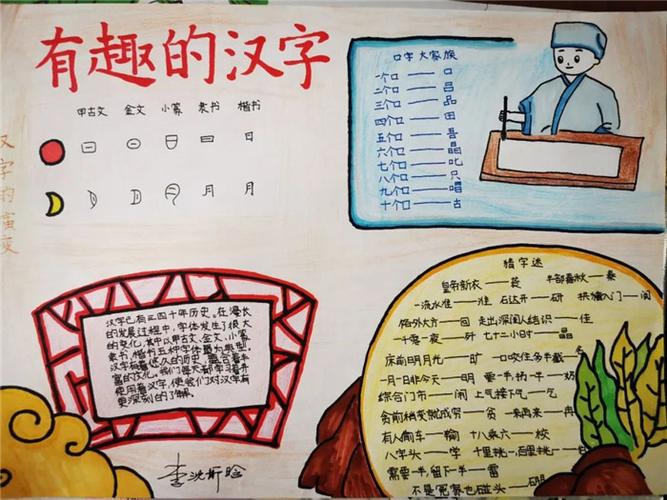 有趣的汉字
甲古文 金文 小篆 隶书 楷书
日 日
月 月
汉字的演变
口字大家族
一个口——口
二个口——吕
三个口——品
四个口——田
五个口——吾
六个口——晶
七个口——叱
八个口——只
九个口——唱
十个口——古
汉字已有三四千年历史,在漫长
的发展过程中,字体发生了很大
的变化,其中以甲古文、金文、小篆
隶书、楷书五种字体最为典型。
汉字有着悠久的历史
富的文化。我们每天都学习着并
使用着汉字,使我们对汉字有
更深刻的了解。
李
猜字迷
皇帝新衣——袭 半部春秋——秦
一流水准——淮 石达开——研 拱猪入门——阂
格外大方——回 走出深闺人结识——佳
一千零一夜——歼 七十二小时——晶
床前明月光——旷 一口咬住多半截——名
一月一日非今天——明 要一半,扔一半——奶
综合门市——闹 上气接下气——乞
贪前稍关就成穷——贫 一来再来——冉
有人偷车——输 十八乘六——校
八字头——学 十里挑一,百里挑一
需要一半,留下一半——雷
不是冤家也碰头——硼